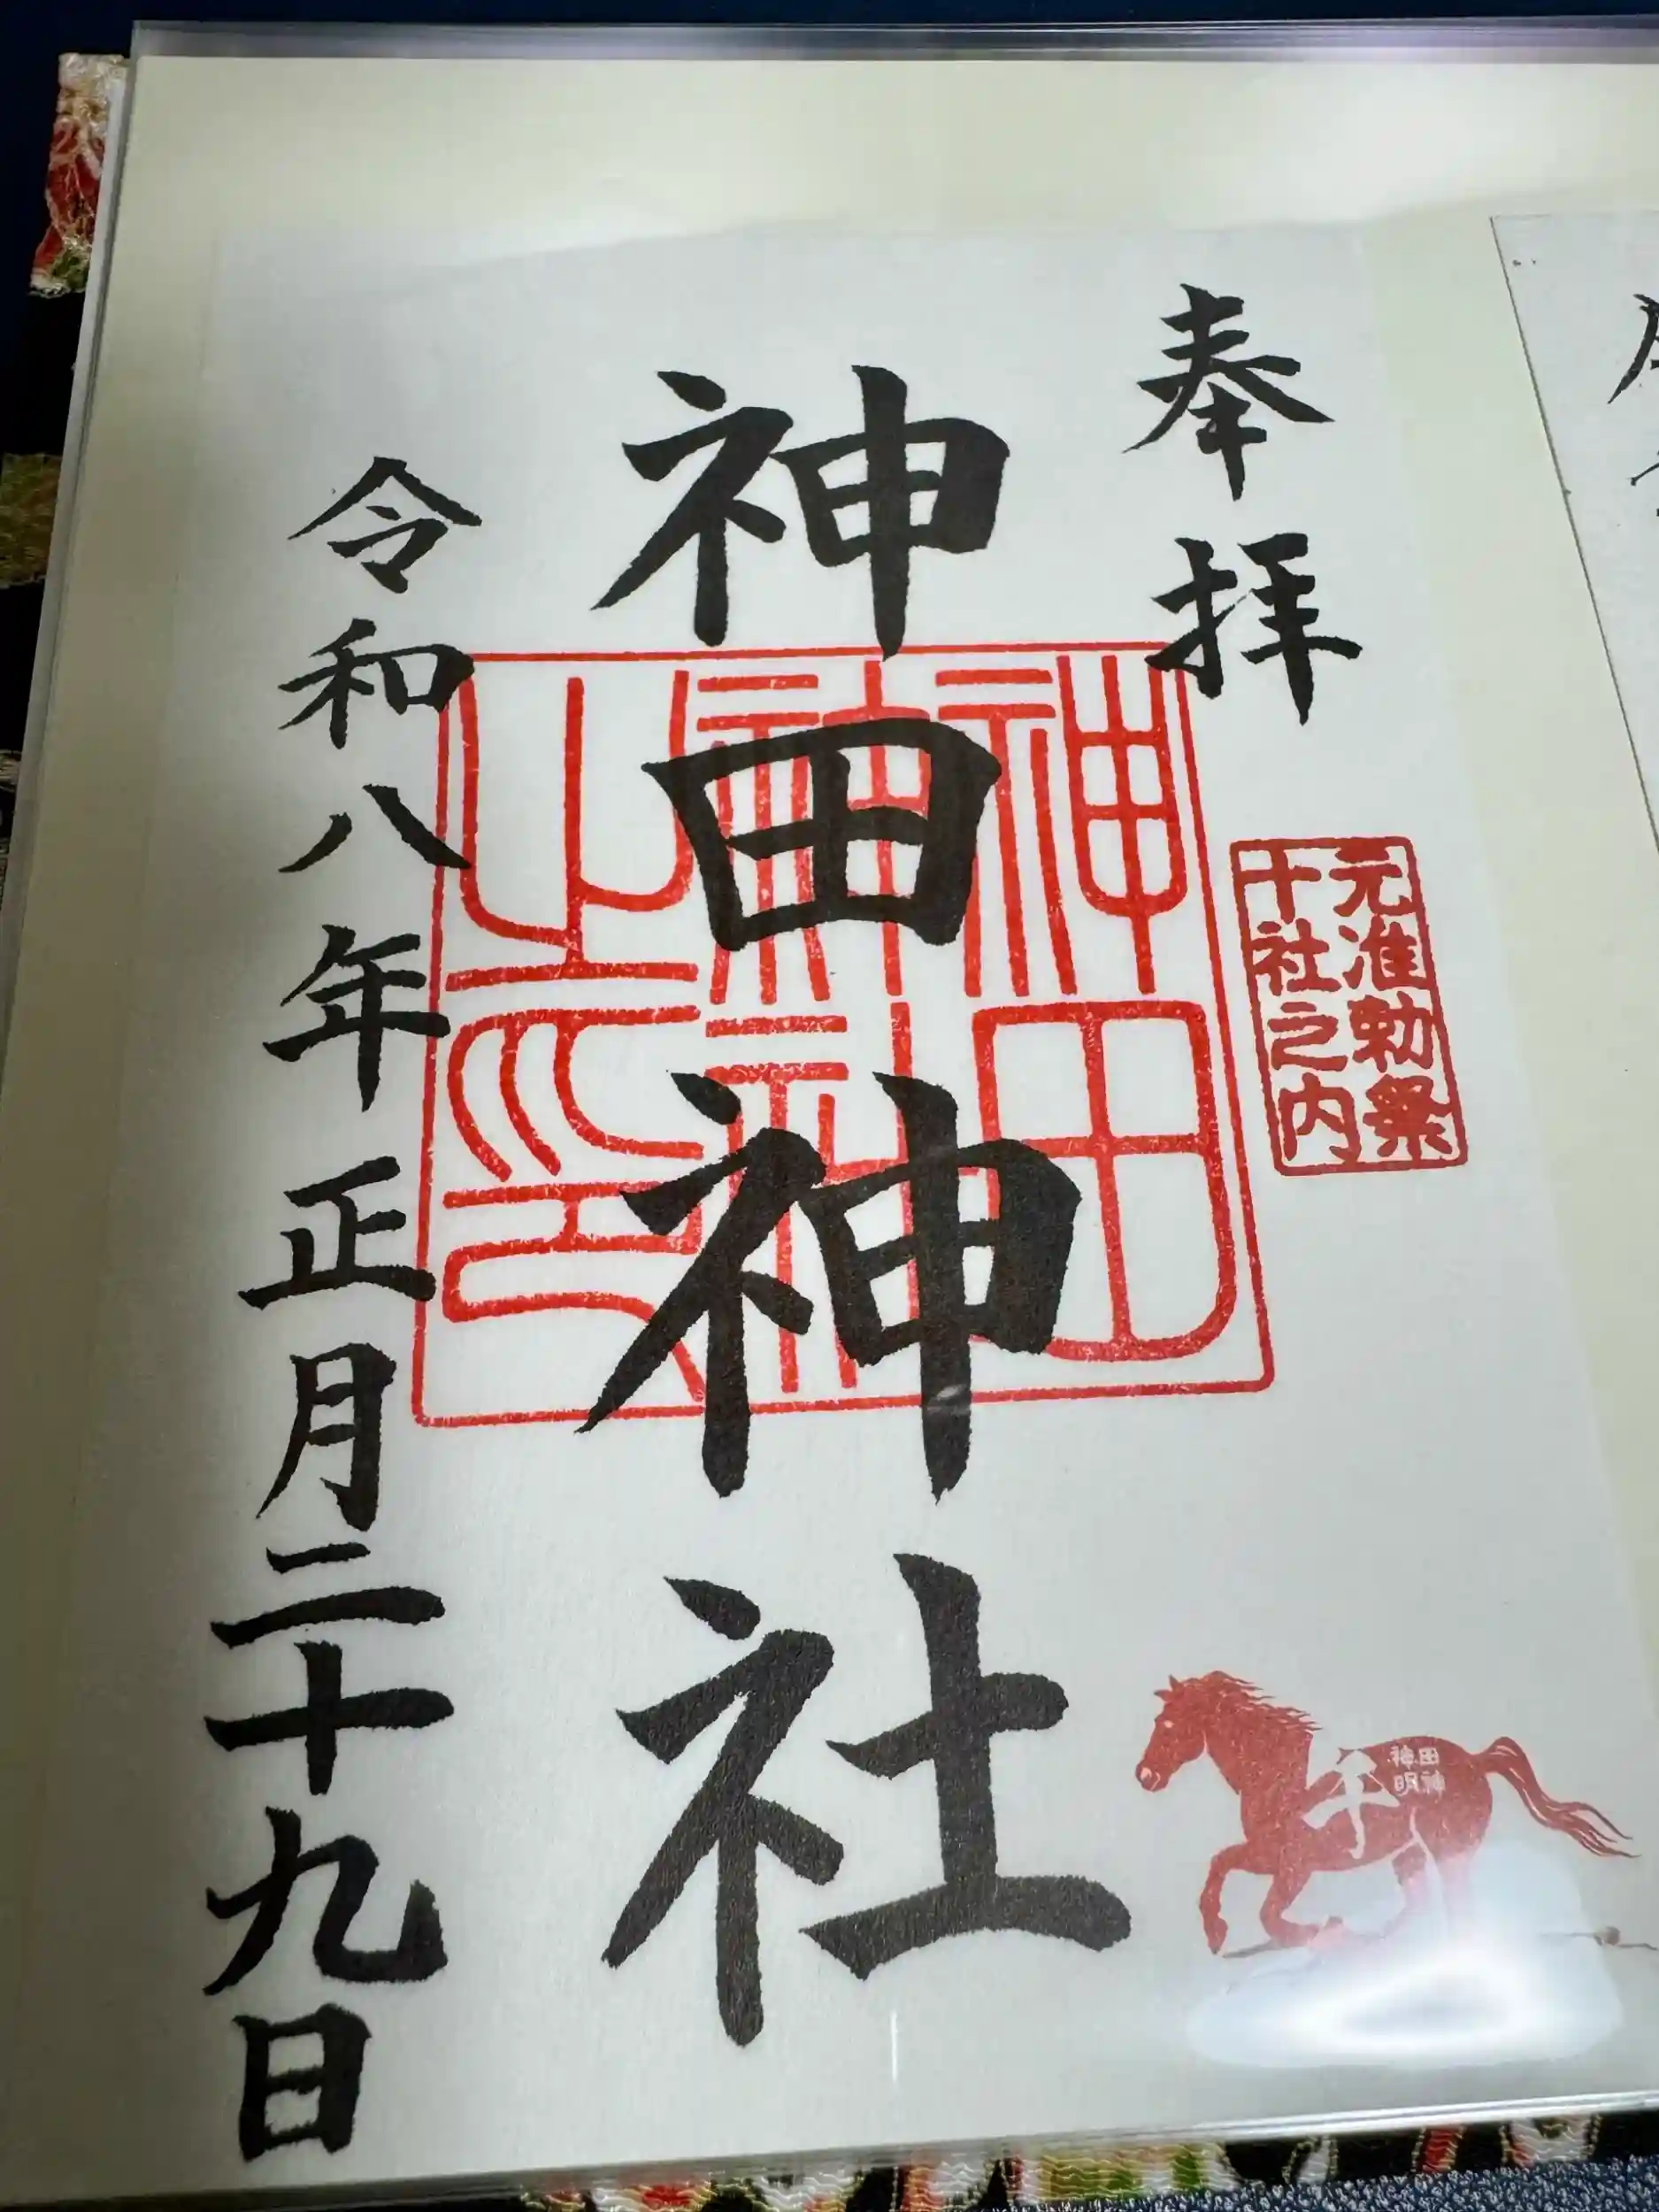 奉拝
元准勅祭
十社之内
神田神社
神田
神社
之印
令和八年正月二十九日
午
神田
神明